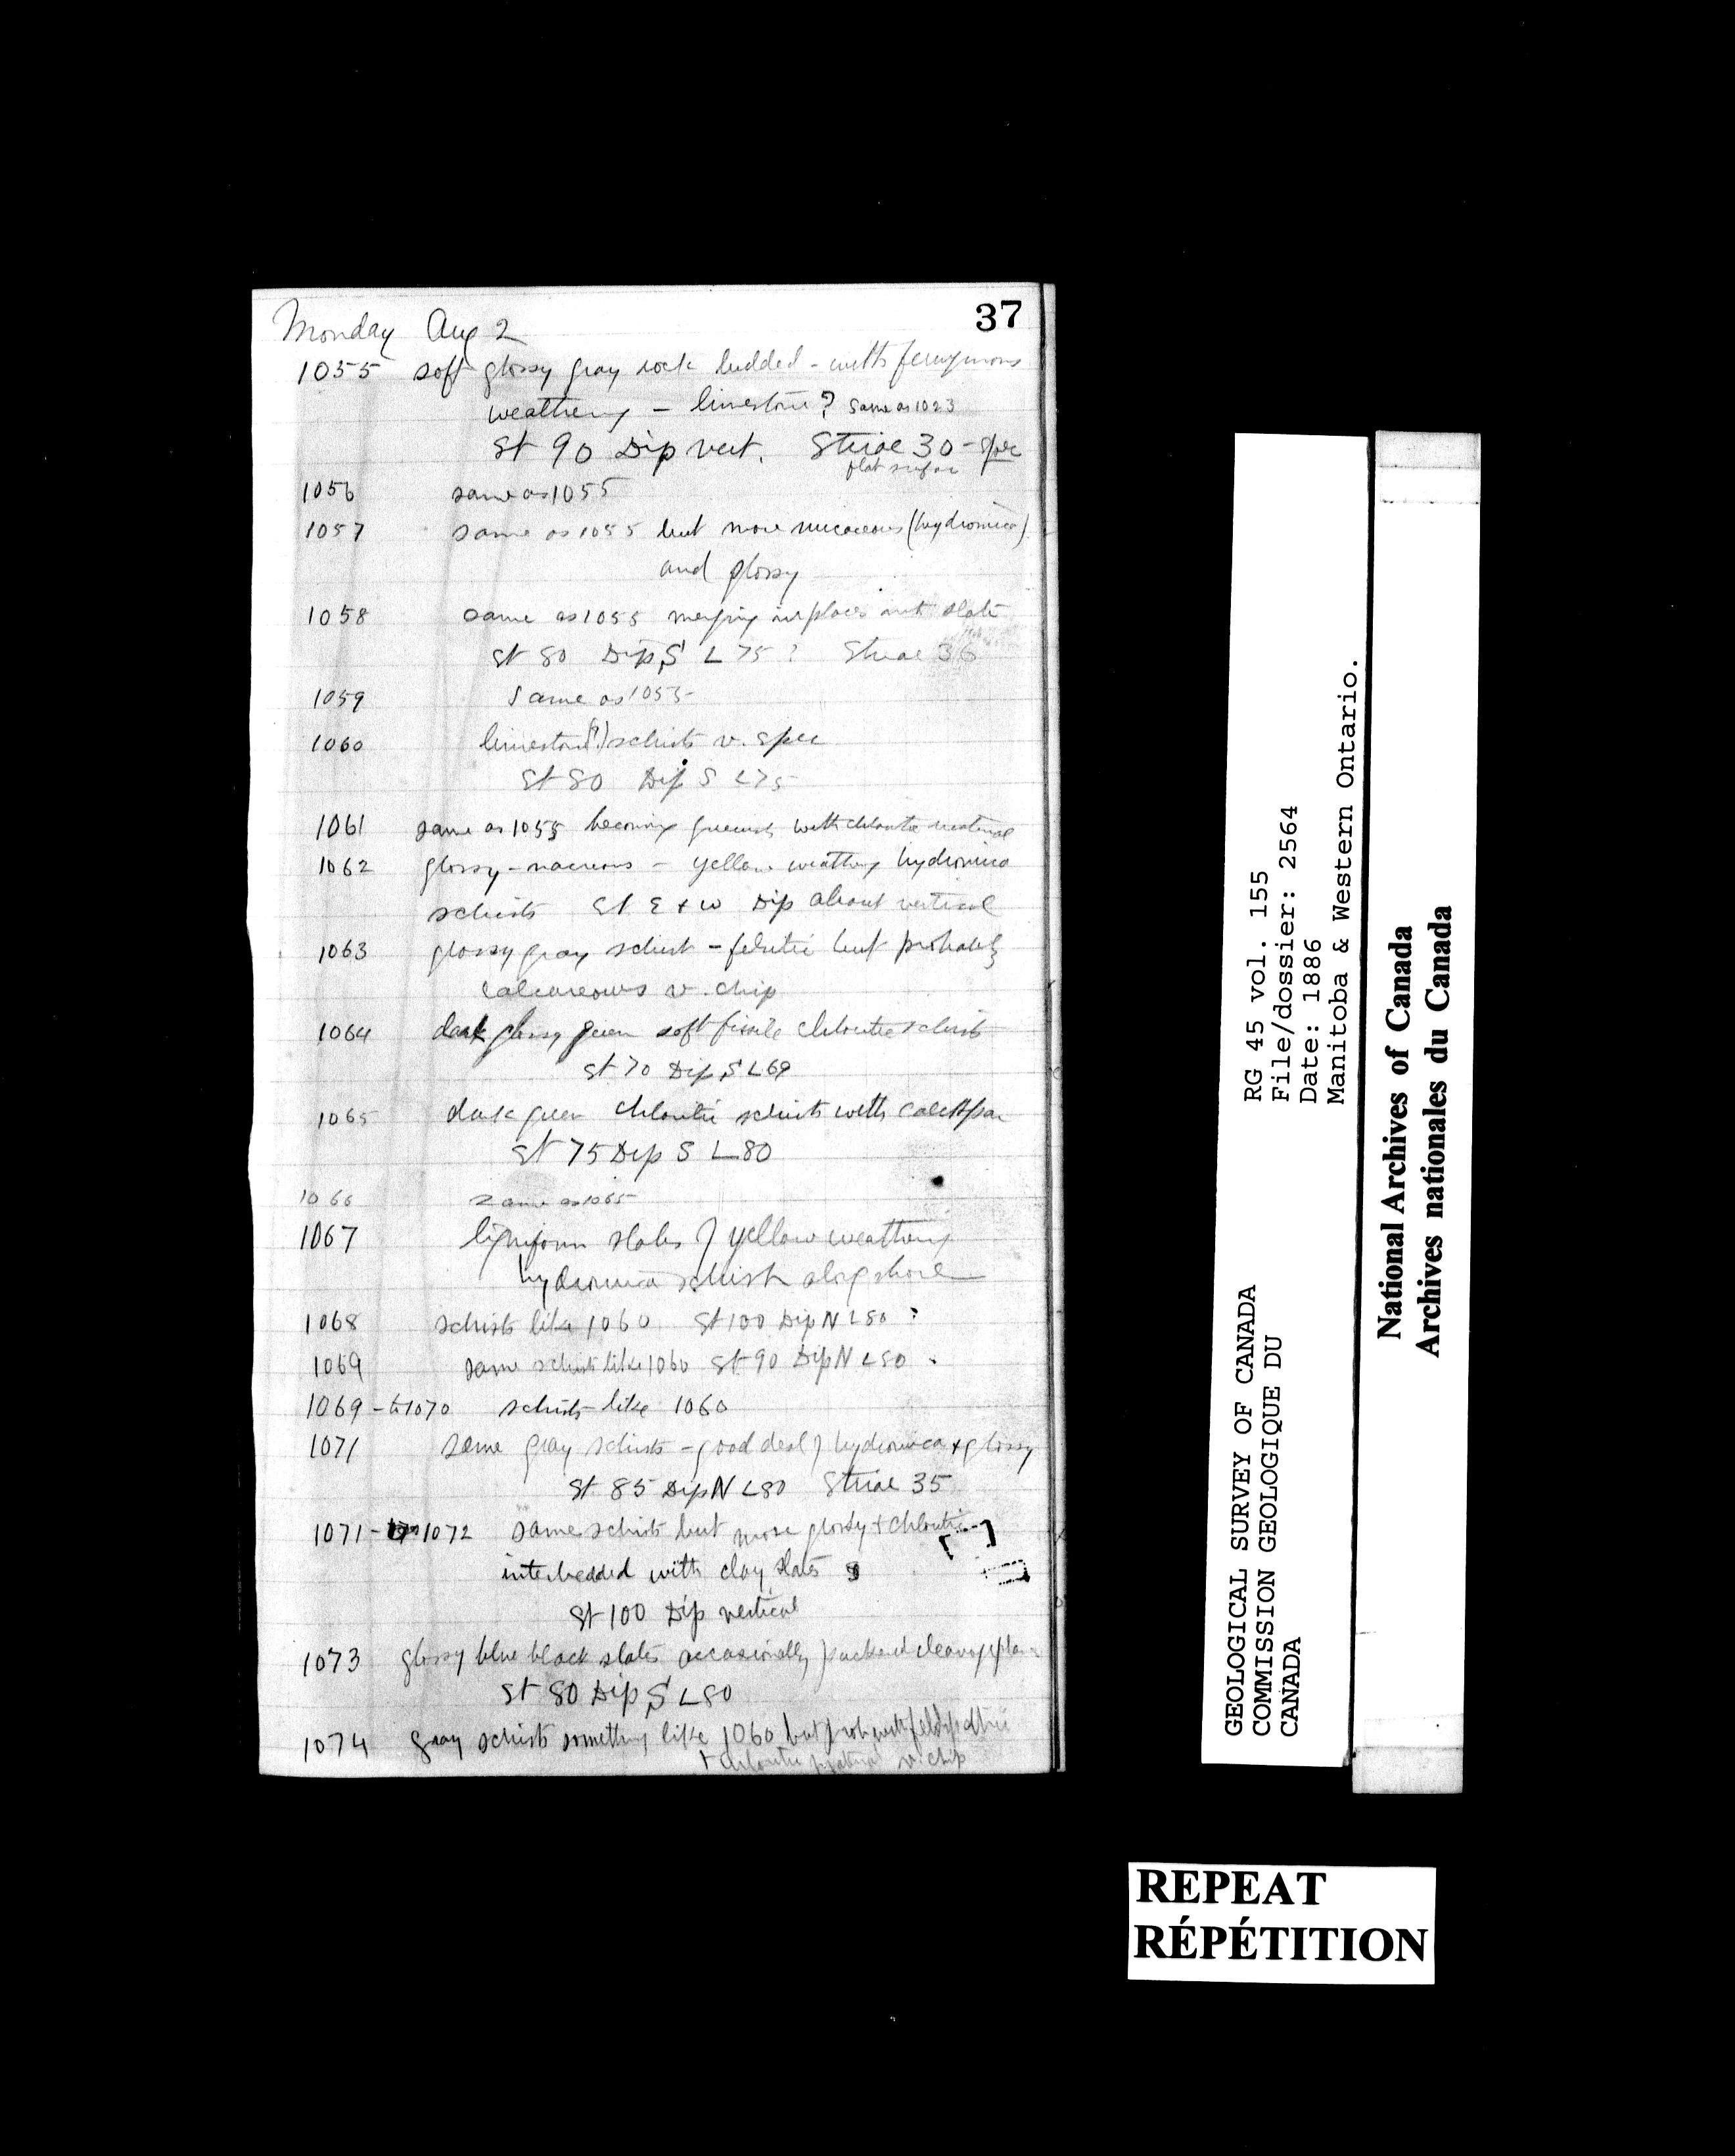 37
Monday Aug 2
1055 soft glossy gray rock bedded - with ferruginous
weathering - limestone? Same as 1023
St 90 Dip vert. Striae 30 - spec
flat surface
1056 same as 1055
1057 same as 1055 but more micaceous (hydromica)
and glossy
1058 same as 1055 merging in places into slate
St 80 Dip S L 75 ? Striae 36
1059 Same as 1055
1060 limestone(?) schists v. spec
St 80 Dip S L 75
1061 same as 1055 becoming greenish with chloritic material
1062 glossy - nacreous - yellow weathering hydromica
schists St E + W Dip about vertical
1063 glossy gray schist - felsitic but probably
calcareous v. chip
1064 dark glossy green soft fissile chloritic schists
St 70 Dip S L 69
1065 dark green chloritic schists with calcspar
St 75 Dip S L 80
1066 same as 1065
1067 ligniform slabs of yellow weathering
hydromica schist along shore
1068 schists like 1060 St 100 Dip N L 80 ?
1069 same schists like 1060 St 90 Dip N L 80
1069 - to 1070 schists like 1060
1071 same gray schists - good deal of hydromica + glossy
St 85 Dip N L 80 Striae 35
1071 - to 1072 same schists but more glossy + chloritic
interbedded with clay slates
St 100 Dip vertical
1073 glossy blue black slates occasionally puckered cleavage planes
St 80 Dip S L 80
1074 gray schists something like 1060 but prob with feldspathic
+ chloritic material v. chip
GEOLOGICAL SURVEY OF CANADA
COMMISSION GEOLOGIQUE DU
CANADA
RG 45 vol. 155
File/dossier: 2564
Date: 1886
Manitoba & Western Ontario.
National Archives of Canada
Archives nationales du Canada
REPEAT
RÉPÉTITION